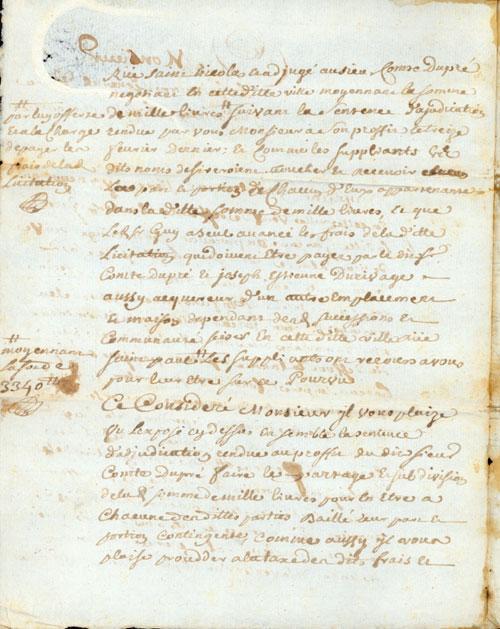 Rue Saint Nicolas adjugé au sieur Comte Dupré
negotiant en cette ditte ville moyennant la somme
de mille livres # suivant la sentence d'adjudication
rendue par vous Monsieur a son proffit le treize
février dernier; Et comme les suppliants &
dits noms desireroient toucher et recevoir
leur part et portion de chacun d'Eux appartenante
dans la ditte somme de mille livres, Et que
led. Sr Guy a seul avancé les frais de la ditte
Licitation qui doivent Etre payez par le dit Sr
Comte dupré et joseph Etienne Durivage
aussy acquereur d'un autre Emplacement
et maison dependant des d. successions et
Communauté scizes en cette ditte ville rue
saint paul # les suppliants ont recours a vous
pour leur Etre sur ce Pourvu
Ce Consideré Monsieur yl vous plaize
Vu l'exposé cy dessus Ensemble la sentence
d'adjudication rendue au proffit du dit sieur
Comte Dupré faire le partage Et subdivision
de la d. somme de mille livres pour la Etre a
Chacune des dittes parties Baillé leur part et
portion Contingente, Comme aussy yl vous
plaise proceder a la taxe des dits frais et
#
par luy offerte
Et a la charge
de payer les
frais de la d.
Licitation
#
moyennant
la so de
3340 #